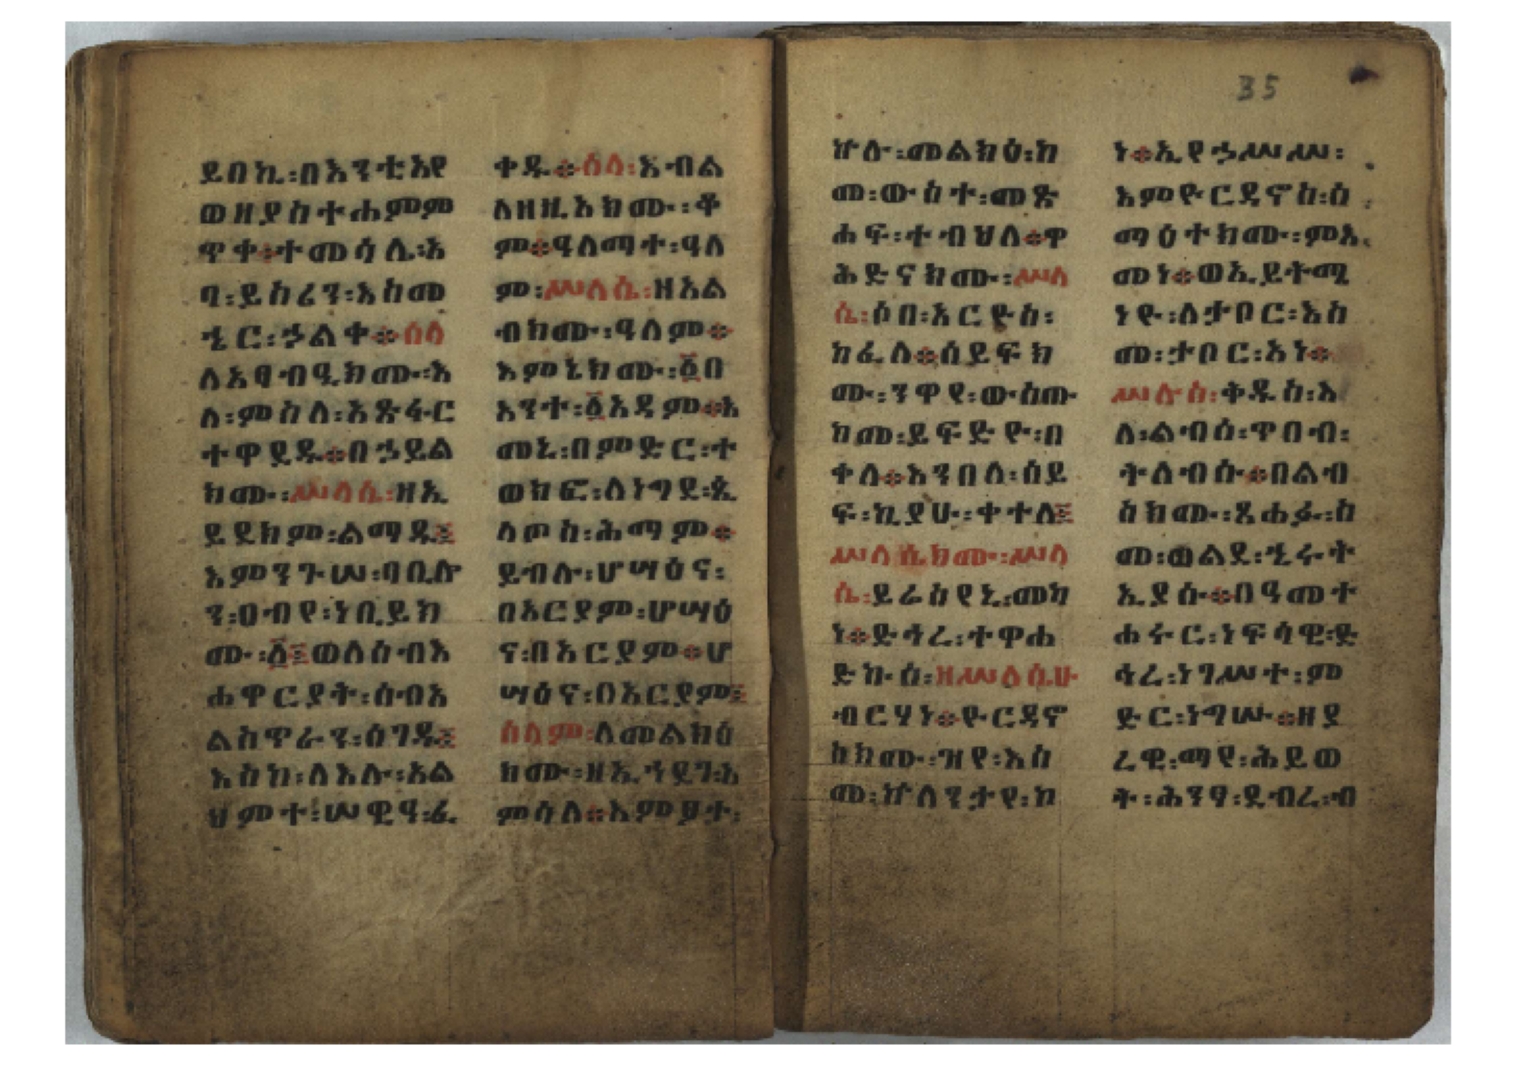 ይበኪ፡በእንቲአየ
ወዘያስተሐምም
ጥቀ፨ተመሳሊ፡አ
ባ፡ይስሬን፡እስመ
ኄር፡ኃልቀ፨ሰላ
ለአፃብዒክሙ፡እ
ለ፡ምስለ፡አጽፋር
ተዋደዱ፨በኃይል
ክሙ፡ሥላሴ፡ዘኢ
ይደክም፡ልማዱ፤
እምንጉሠ፡ባቢሎ
ን፡ዐብየ፡ነቢይክ
ሙ፡፩፤ወለሰብእ
ሐዋርያት፡ሰብአ
ልስጥራን፡ሰገዱ፤
እስከ፡ለእሉ፡አል
ህምተ፡ሠዊዓ፡ፈ
ቀዱ፨ሰላ፡እብል
ለዘዚአክሙ፡ቆ
ም፨ዓለማተ፡ዓለ
ም፡ሥላሴ፡ዘአል
ብክሙ፡ዓለም፨
እምኔክሙ፡፩በ
እንተ፡፩አዳም፨አ
መኒ፡በምድር፡ተ
ወክፎ፡ለነግደ፡ጲ
ላጦስ፡ሕማም፨
ይብሉ፡ሆሣዕና፡
በአርያም፡ሆሣዕ
ና፡በአርያም፨ሆ
ሣዕና፡በአርያም፤
ሰላም፡ለመልክዐ
ክሙ፡ዘኢኀደገ፡አ
ምሳለ፨እምፃተ፡
ኵሉ፡መልክዕ፡ከ
መ፡ውስተ፡መጽ
ሐፍ፡ተብህለ፨ዋ
ሕድናክሙ፡ሥላ
ሴ፡ሶበ፡አርዮስ፡
ከፈለ፨ሰይፍክ
ሙ፡ንዋየ፡ውስጡ
ከመ፡ይፍድዮ፡በ
ቀለ፨እንበለ፡ሰይ
ፍ፡ኪያሁ፡ቀተለ፤
ሥላሴክሙ፡ሥላ
ሴ፡ይሬስየኒ፡መካ
ነ፨ድኅረ፡ተዋሐ
ድኩ፡ሰ፡ዘሥላሴሁ
ብርሃነ፨ዮርዳኖ
ስክሙ፡ዝየ፡እስ
መ፡ኵለንታየ፡ኮ
ነ፨ኢየኃሥሥ፡
እምዮርዳኖስ፡ስ
ማዕተክሙ፡ምእ
መነ፨ወኢይትሚ
ነዮ፡ለታቦር፡እስ
መ፡ታቦር፡አነ፨
ሥሉስ፡ቅዱስ፡እ
ለ፡ልብሰ፡ጥበብ፡
ትለብሱ፨በልብ
ስክሙ፡ጸሐፉ፡ስ
መ፡ወልደ፡ኄሩት
ኢያሱ፨በዓመተ
ሐሩር፡ነፍሳዊ፡ድ
ኅረ፡ነገሥተ፡ም
ድር፡ነግሡ፨ዘያ
ረዊ፡ማየ፡ሕይወ
ት፡ሕንፃ፡ደብረ፡ብ
35